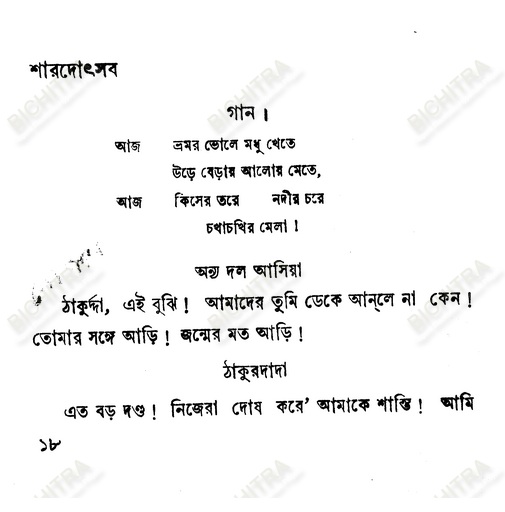 শারদোৎসব
গান।
আজ ভ্রমর ভোলে মধু খেতে
উড়ে বেড়ায় আলোয় মেতে,
আজ কিসের তরে নদীর চরে
চখাচখির মেলা!
অন্য দল আসিয়া
ঠাকুর্দ্দা, এই বুঝি! আমাদের তুমি ডেকে আন্‌লে না কেন!
তোমার সঙ্গে আড়ি! জন্মের মত আড়ি!
ঠাকুরদাদা
এত বড় দণ্ড! নিজেরা দোষ করে’ আমাকে শাস্তি! আমি
১৮
BICHITRA
BICHITRA
BICHITRA
BICHITRA
BICHITRA
BICHITRA
BICHITRA
BICHITRA